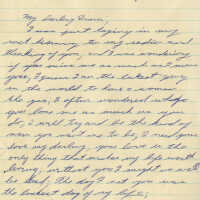 My Darling Susie,
I was just laying in my
bed listening to my radio and
thinking of you, and I was wondering
if you miss me as much as I miss
you, I guess I am the luckiest guy
in the world to have a woman
like you, I often wondered why
you love me as much as you
do, I will try and be the kind of
man you want me to be, I need your
love my darling, your love is the
only thing that makes my life worth
living, without you I might as well
be dead, the day I met you was
the luckiest day of my life,